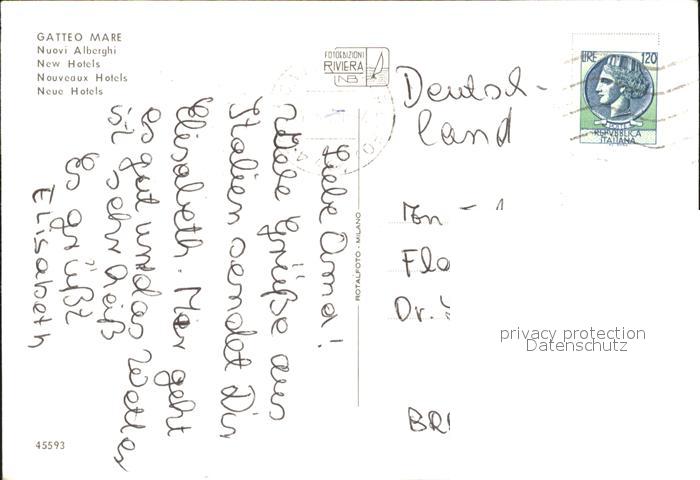 GATTEO MARE
Nuovi Alberghi
New Hotels
Nouveaux Hotels
Neue Hotels
FOTOEDIZIONI
RIVIERA
NB
LIRE 120
POSTE
REPVBBLICA
ITALIANA
Liebe Anna!
Viele Grüße aus
Italien sendet Dir
Elisabeth. Mir geht
es gut und das Wetter
ist sehr heiß
Es grüßt
Elisabeth
ROTALFOTO - MILANO
Deutsch-
land
Flo
Dr.
BR
privacy protection
Datenschutz
45593